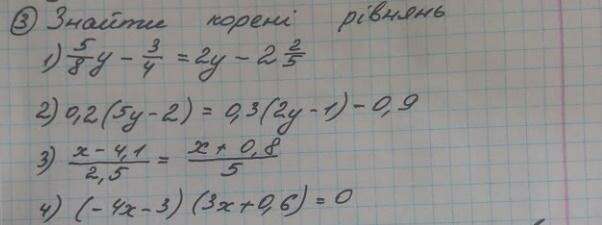 ③ Знайти корені рівнянь
1) 5/8 y - 3/4 = 2y - 2 2/5
2) 0,2(5y-2) = 0,3(2y-1) - 0,9
3) x - 4,1 / 2,5 = x + 0,8 / 5
4) (-4x-3) (3x+0,6) = 0